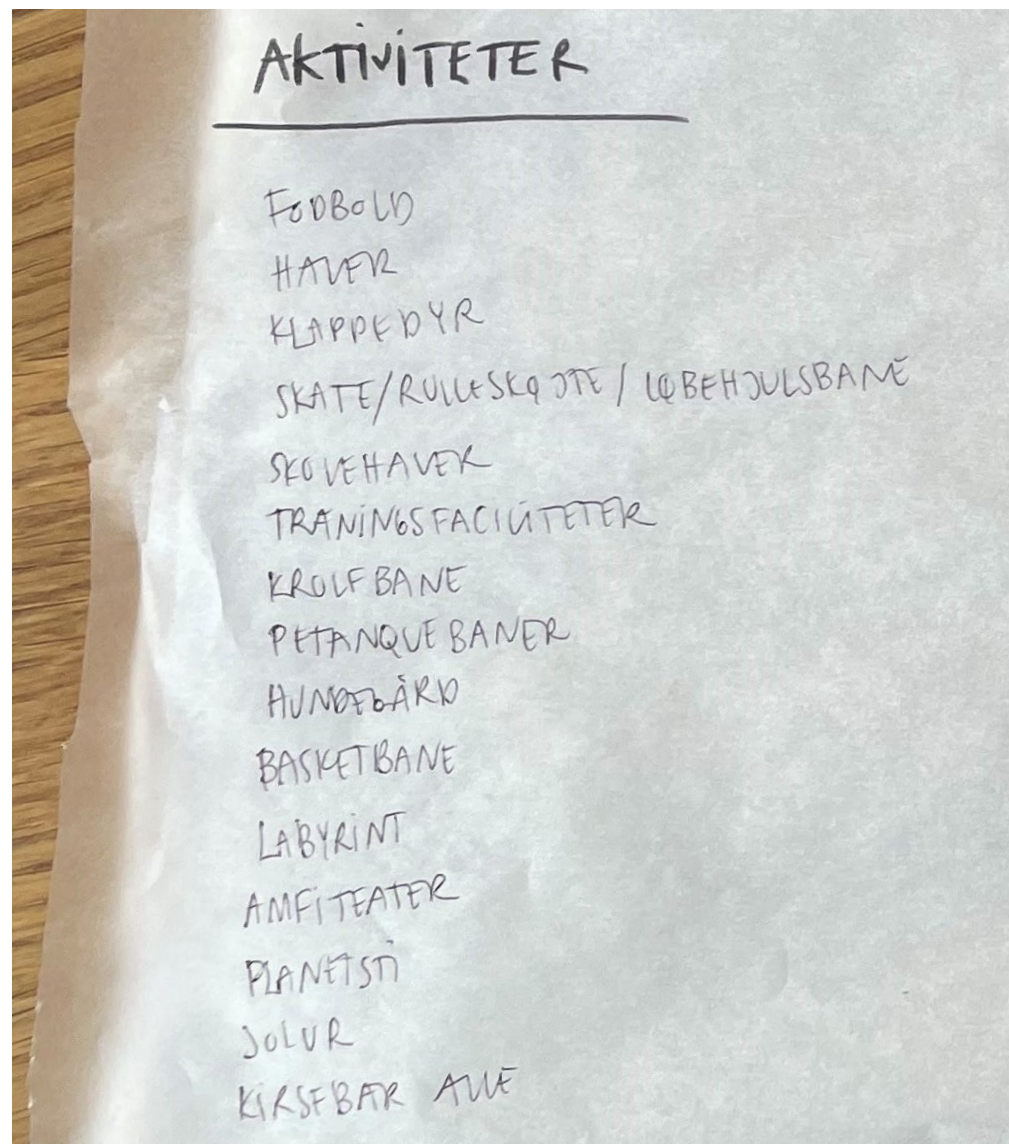 AKTIVITETER
FODBOLD
HAVER
KLAPPEDYR
SKATE/RULLESKØJTE/LØBEHJULSBANE
SKOVEHAVER
TRÆNINGSFACILITETER
KROLFBANE
PETANQUEBANER
HUNDEGÅRD
BASKETBANE
LABYRINT
AMFITEATER
PLANETSTI
SOLUR
KIRSEBÆR ALLE